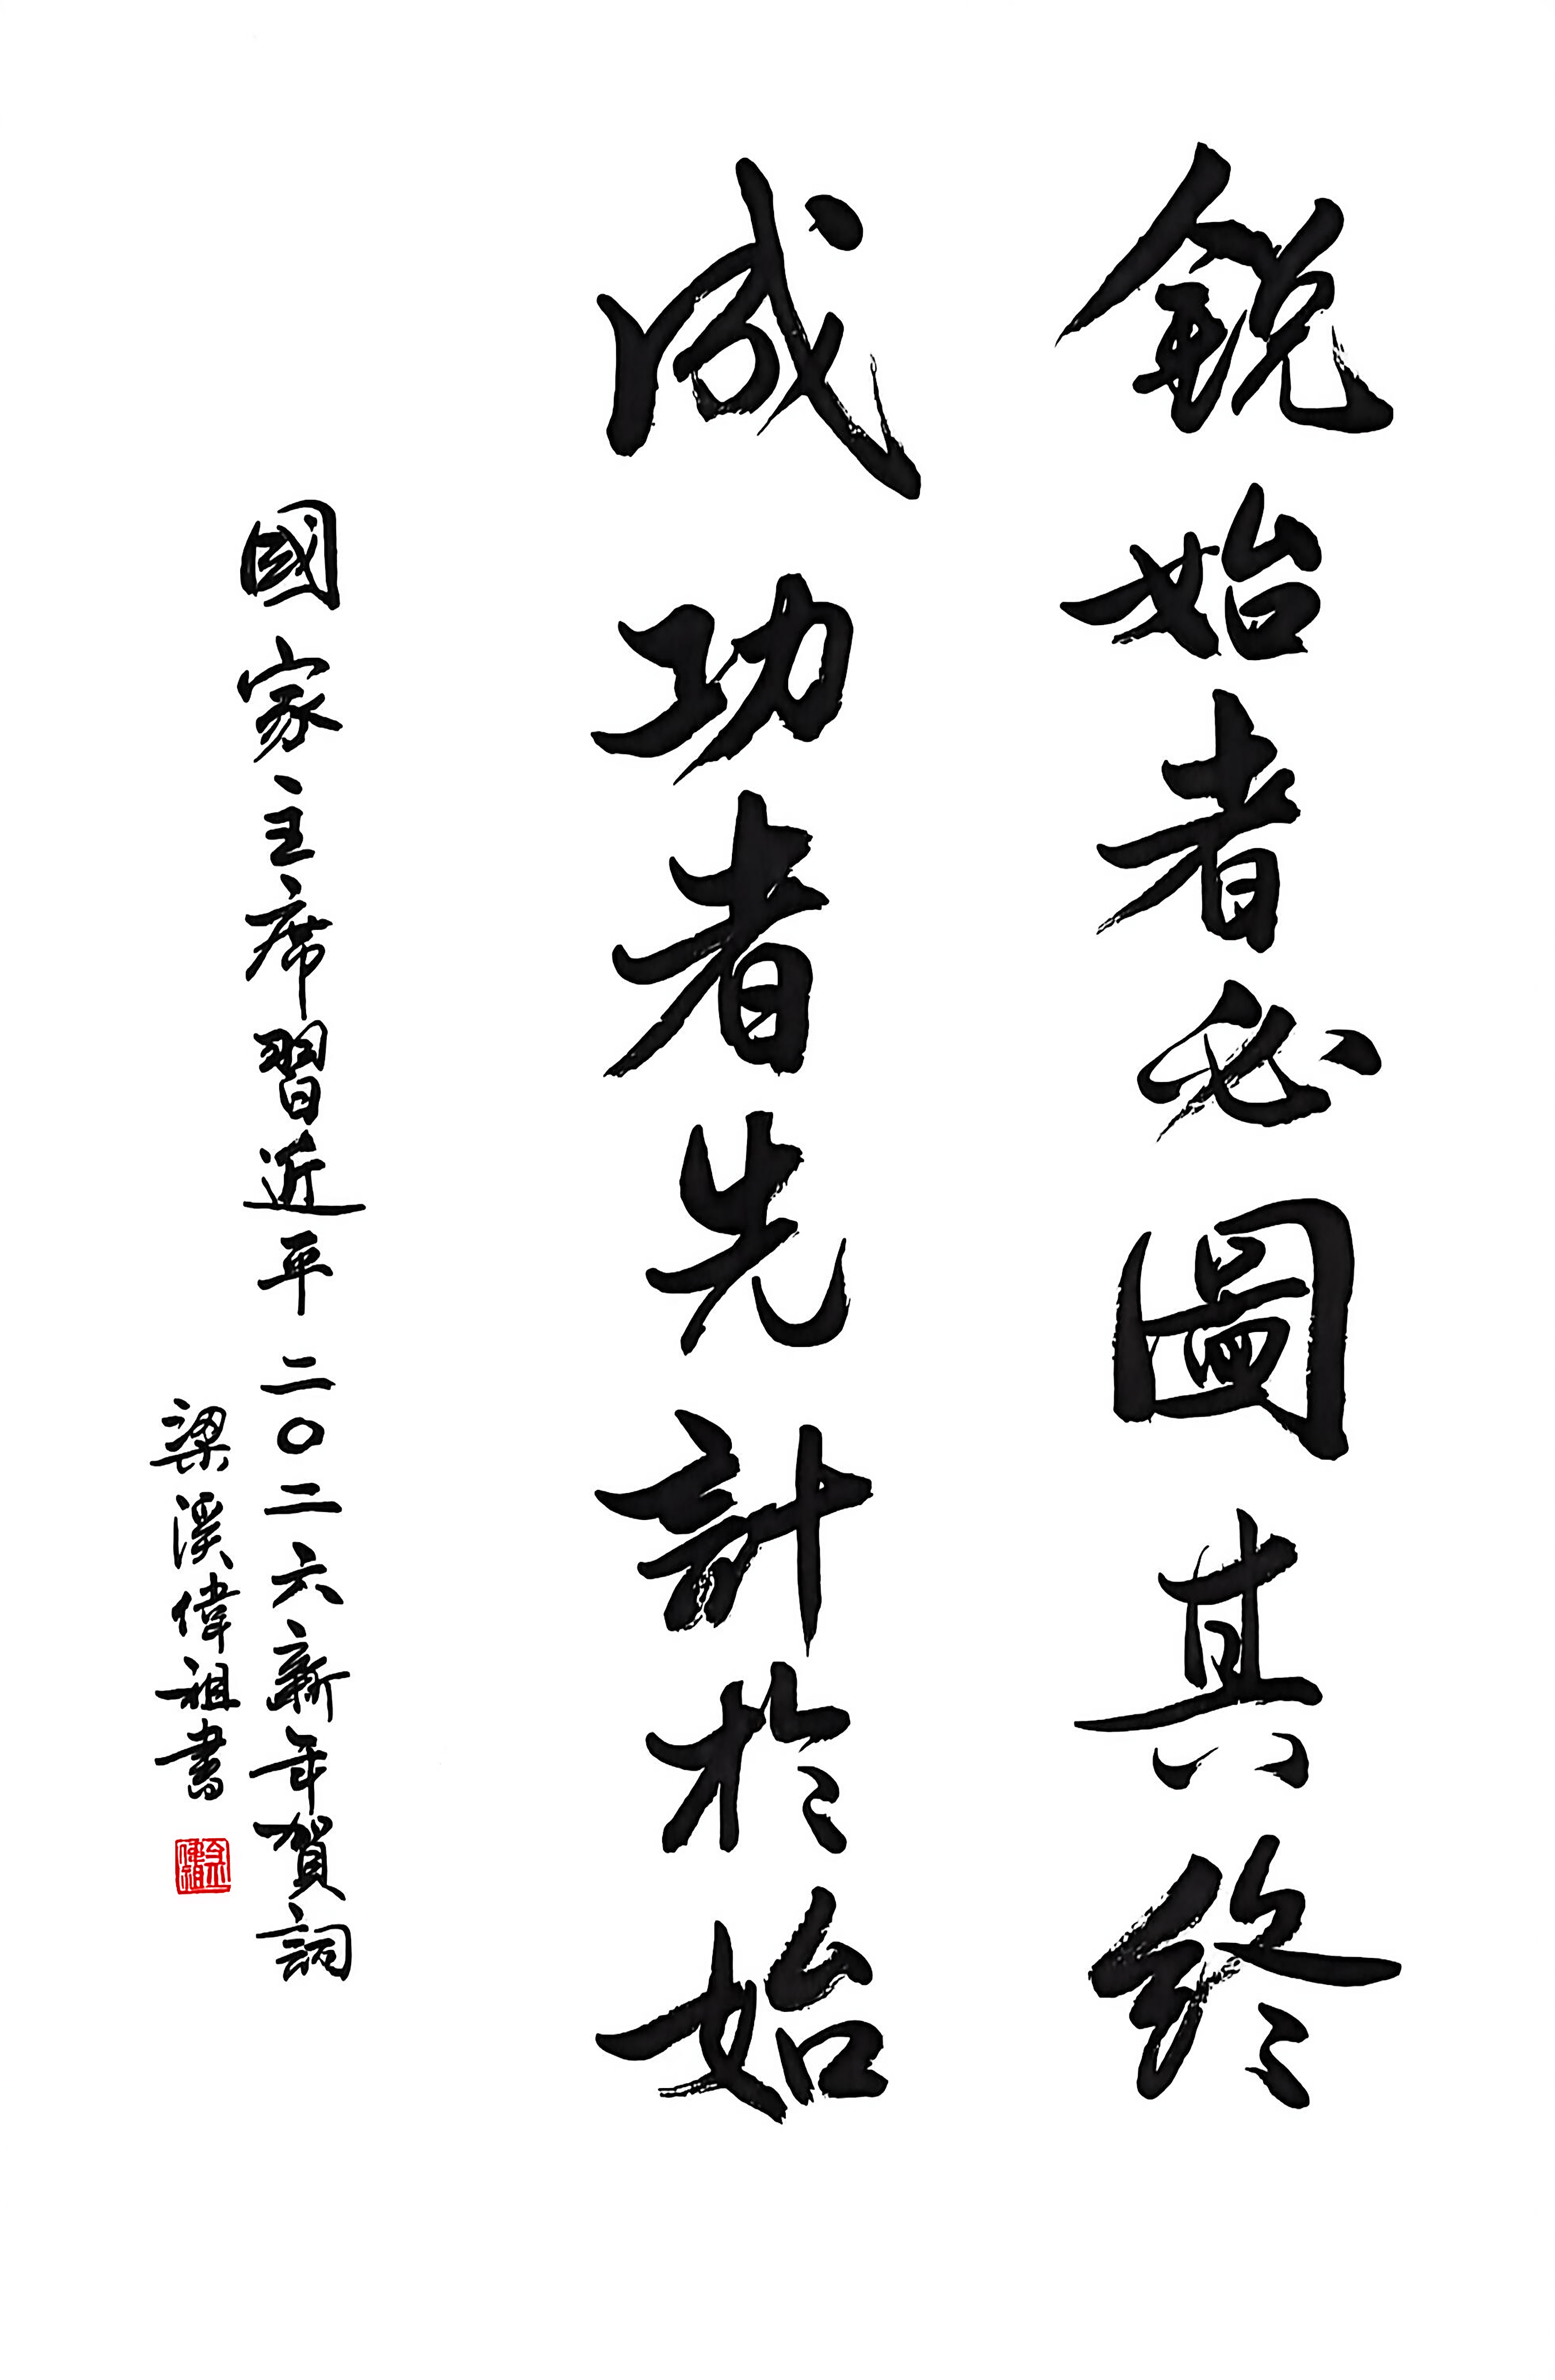 銳始者必圖其終
成功者先計於始
國家主席習近平二〇二六新年賀詞
梁溪偉祖書